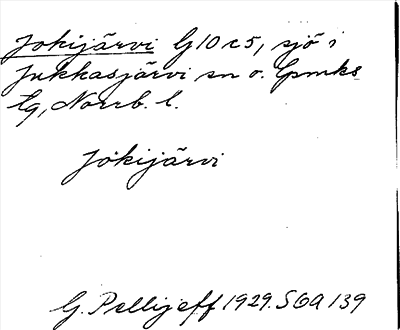 Jokijärvi G10c5, sjö i
Jukkasjärvi sn o. lpmks
lg, Norrb. l.
Jokijärvi
G. Pellijeff 1929. SOA 139